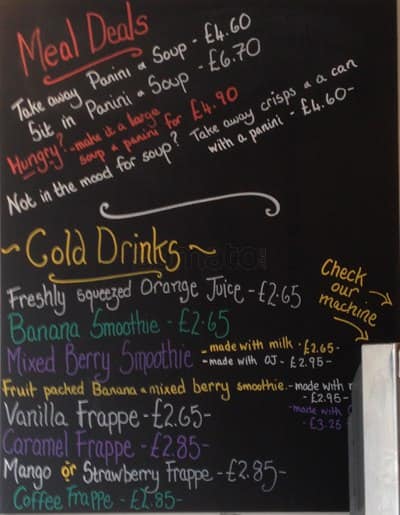 Meal Deals
Take away Panini & Soup - £4.60
Sit in Panini & Soup - £6.70
Hungry? - make it a large
soup & panini for £4.90
Not in the mood for soup? Take away crisps & a can
with a panini - £4.60-
~Cold Drinks~
Check
our
machine
Freshly squeezed Orange Juice - £2.65
Banana Smoothie - £2.65
Mixed Berry Smoothie - made with milk - £2.65-
- made with OJ - £2.95-
Fruit packed Banana & mixed berry smoothie - made with
- £2.95-
- made with
- £3.25
Vanilla Frappe - £2.65-
Caramel Frappe - £2.85-
Mango or Strawberry Frappe - £2.85-
Coffee Frappe - £2.85-